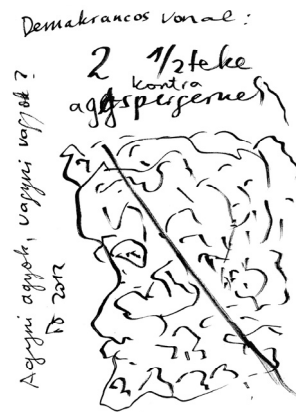 Demakrancos vonal:
2 1/2teke
kontra
aggspergerne
Agyni agyok, vagyni vagyok?
2012